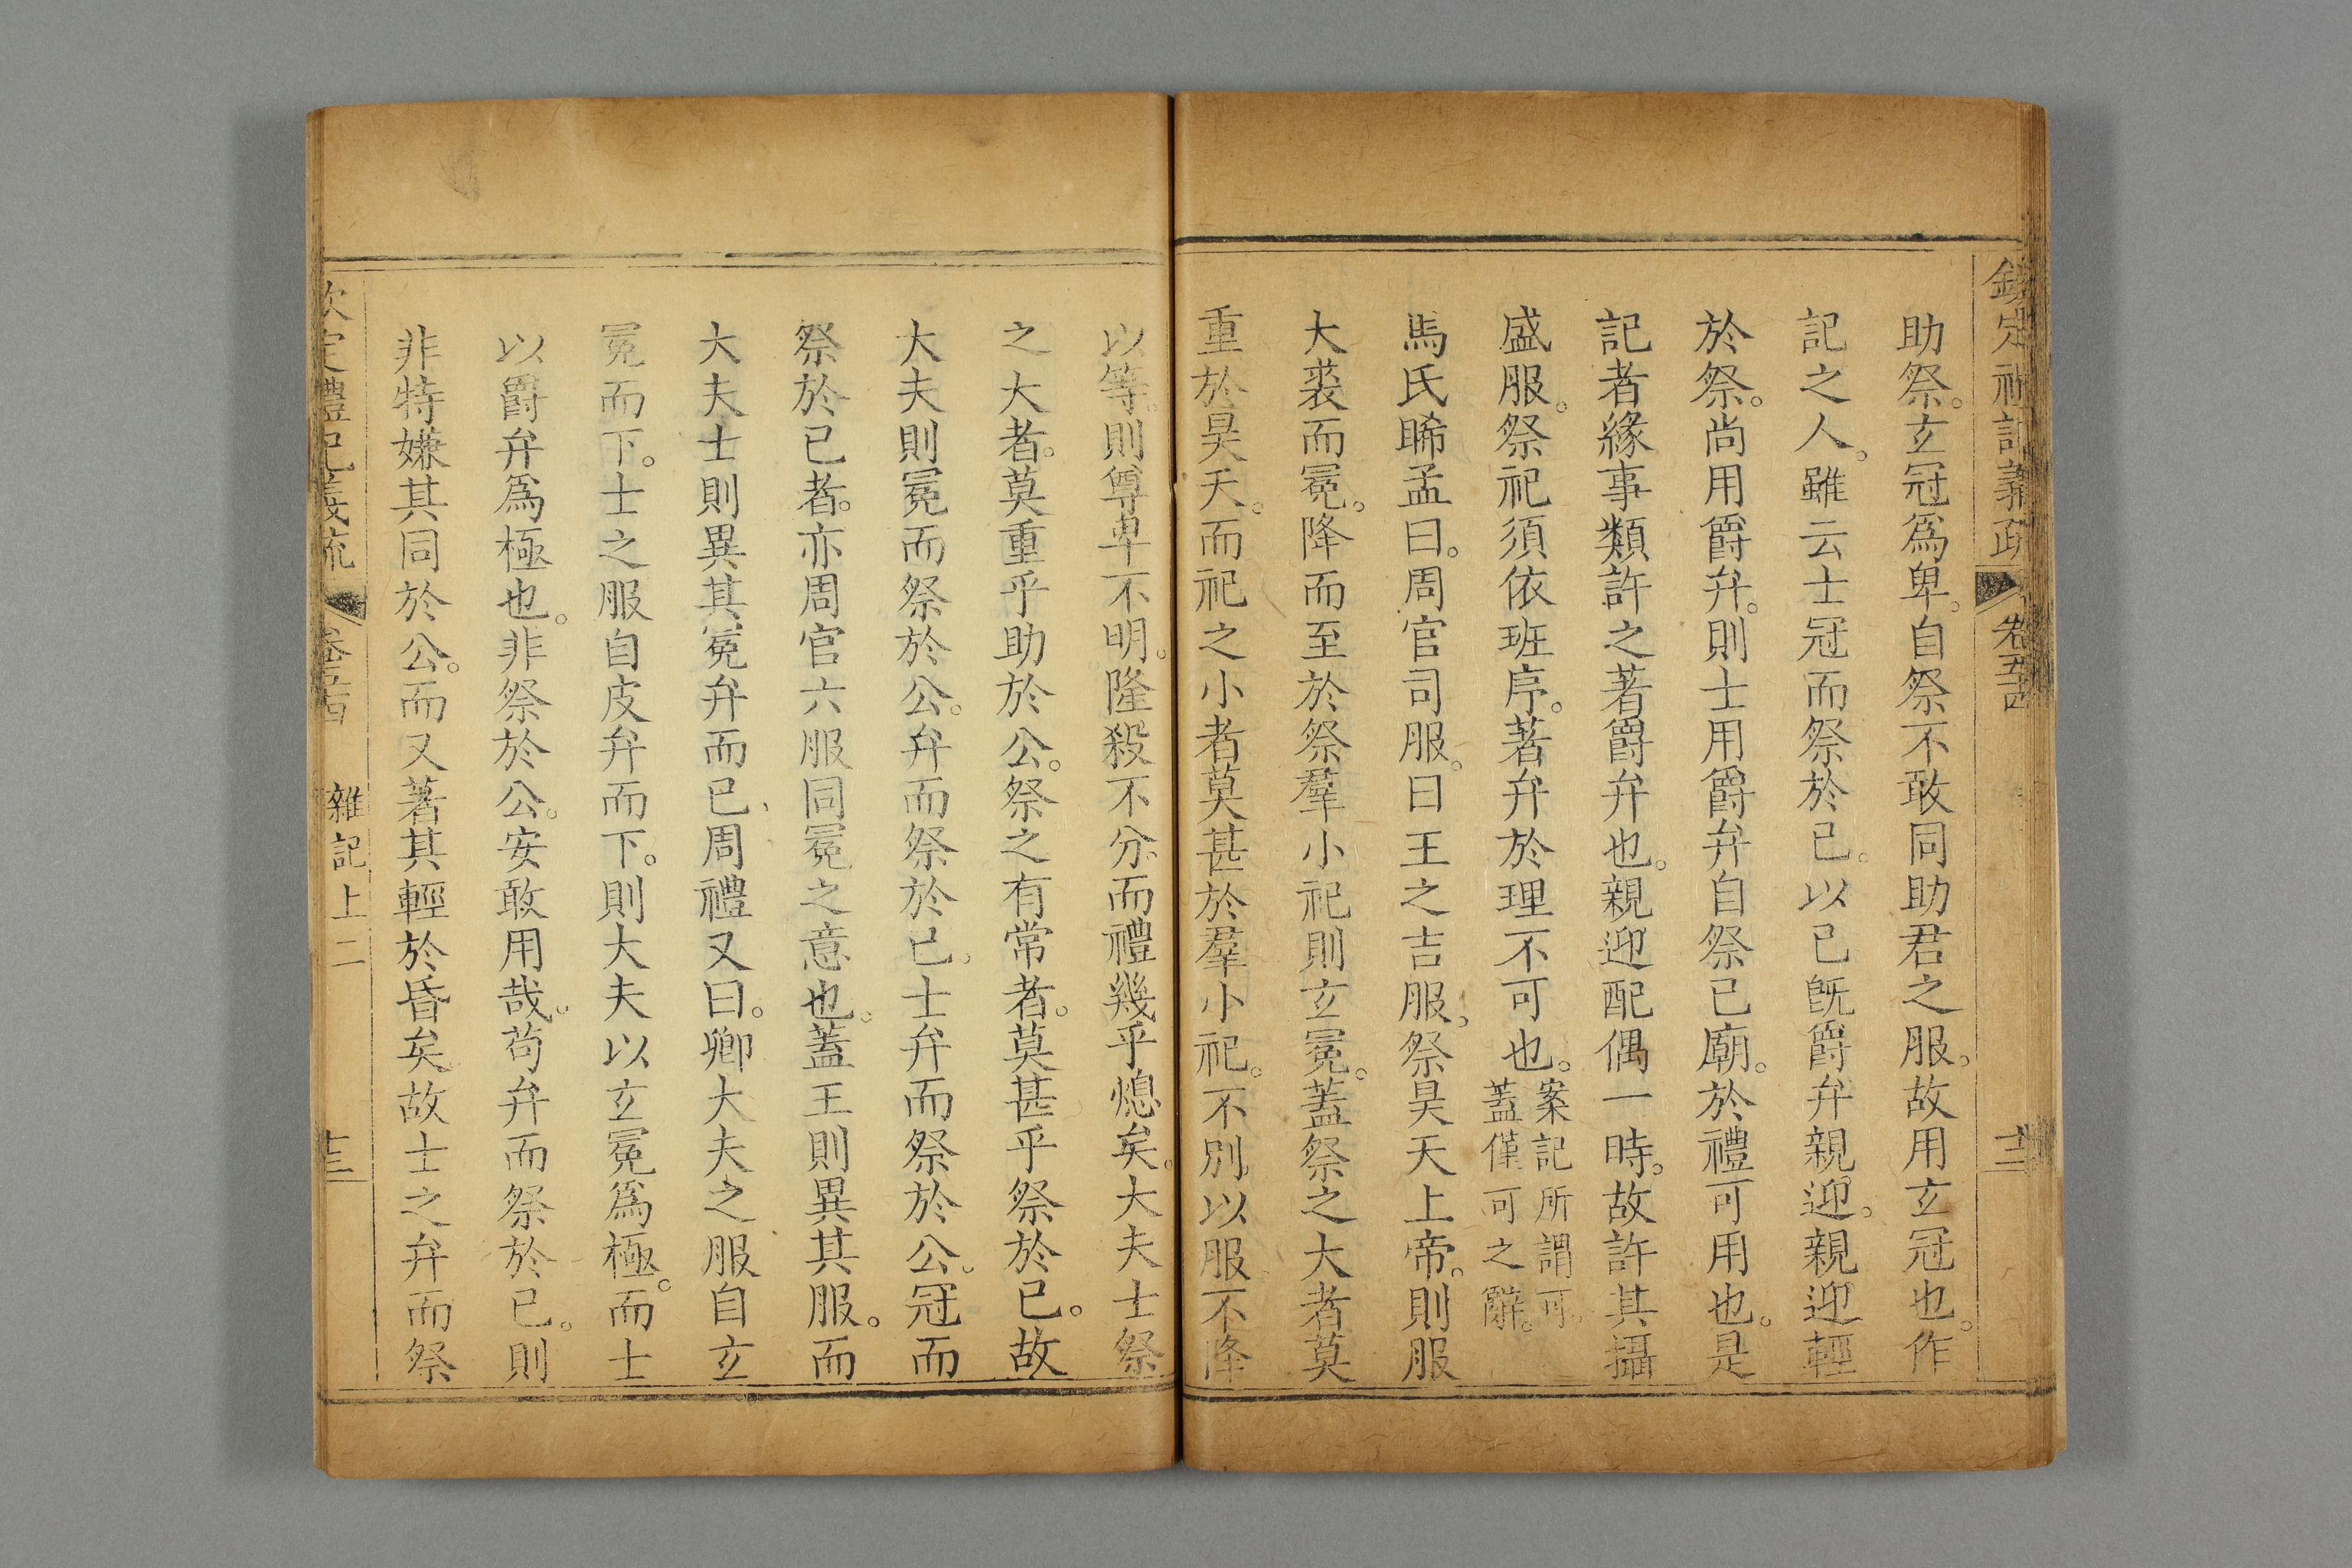 助祭。玄冠爲卑。自祭不敢同助君之服。故用玄冠也。作
記之人。雖云士冠而祭於已。以已旣爵弁親迎。親迎輕
於祭。尚用爵弁。則士用爵弁自祭已廟。於禮可用也。是
記者緣事類許之著爵弁也。親迎配偶一時。故許其攝
盛服。祭祀須依班序。著弁於理不可也。案記所謂可。蓋僅可之辭。
馬氏晞孟曰。周官司服。曰王之吉服。祭昊天上帝。則服
大裘而冕。降而至於祭羣小祀則玄冕。蓋祭之大者莫
重於昊天。而祀之小者莫甚於羣小祀。不別以服不降
以等。則尊卑不明。隆殺不分。而禮幾乎熄矣。大夫士祭
之大者。莫重乎助於公。祭之有常者。莫甚乎祭於已。故
大夫則冕而祭於公。弁而祭於已。士弁而祭於公。冠而
祭於已者。亦周官六服同冕之意也。蓋王則異其服。而
大夫士則異其冕弁而已、周禮又曰。卿大夫之服自玄
冕而下。士之服自皮弁而下。則大夫以玄冕爲極。而士
以爵弁爲極也。非祭於公。安敢用哉。苟弁而祭於已。則
非特嫌其同於公。而又著其輕於昏矣故士之弁而祭
雜記上二